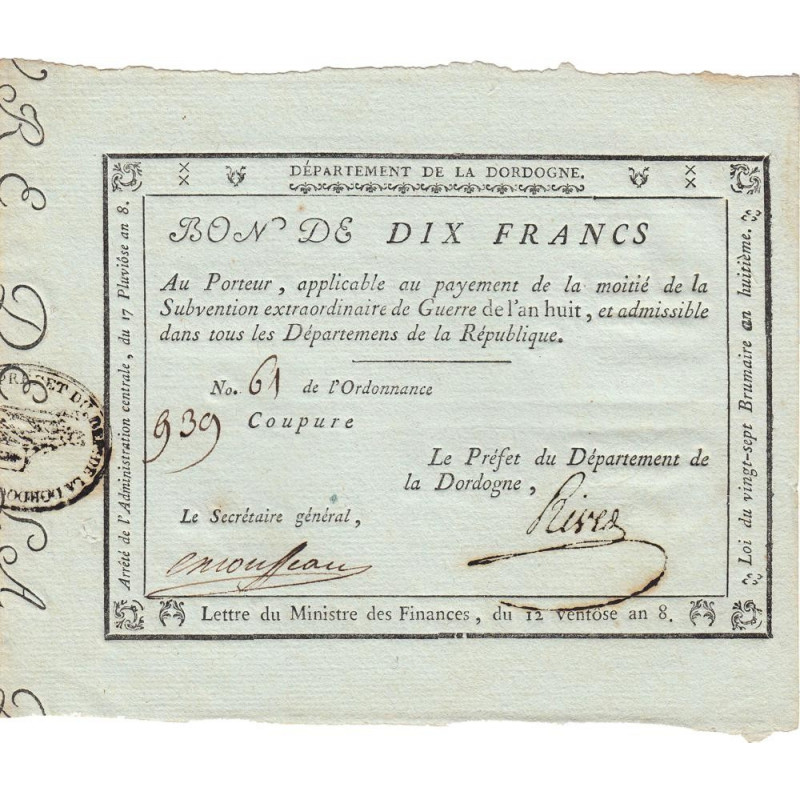 DÉPARTEMENT DE LA DORDOGNE.
BON DE DIX FRANCS
Au Porteur, applicable au payement de la moitié de la
Subvention extraordinaire de Guerre de l'an huit, et admissible
dans tous les Départemens de la République.
No. 61 de l'Ordonnance
939 Coupure
Le Préfet du Département de
la Dordogne,
Rivet
Le Secrétaire général,
Lettre du Ministre des Finances, du 12 Ventôse an 8.
Arrêté de l'Administration centrale, du 17 Pluviôse an 8.
Loi du vingt-sept Brumaire an huitième.
R E D E L A
PREFET DU DEP. DE LA DORDO